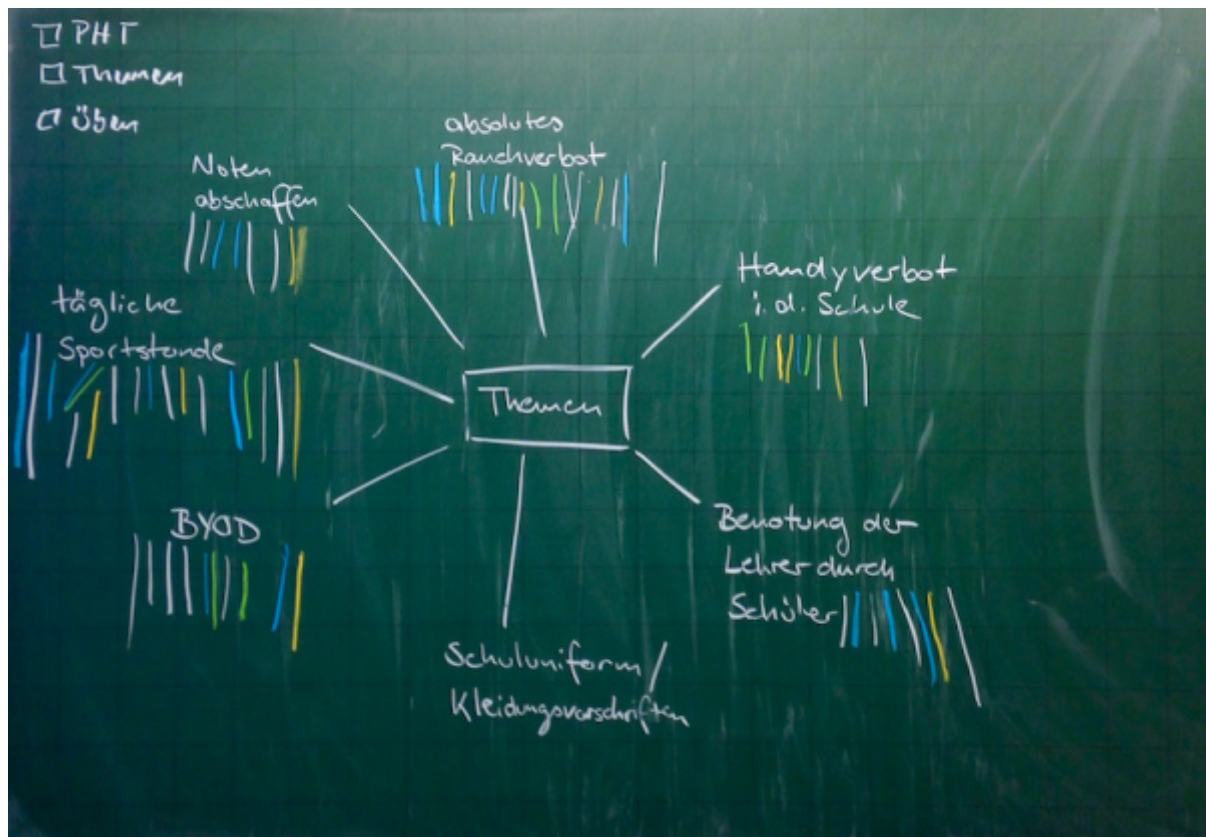 PHT
Themen
Üben
absolutes
Rauchverbot
Noten
abschaffen
Handyverbot
i. d. Schule
tägliche
Sportstunde
Themen
BYOD
Benotung der
Lehrer durch
Schüler
Schuluniform /
Kleidungsvorschriften